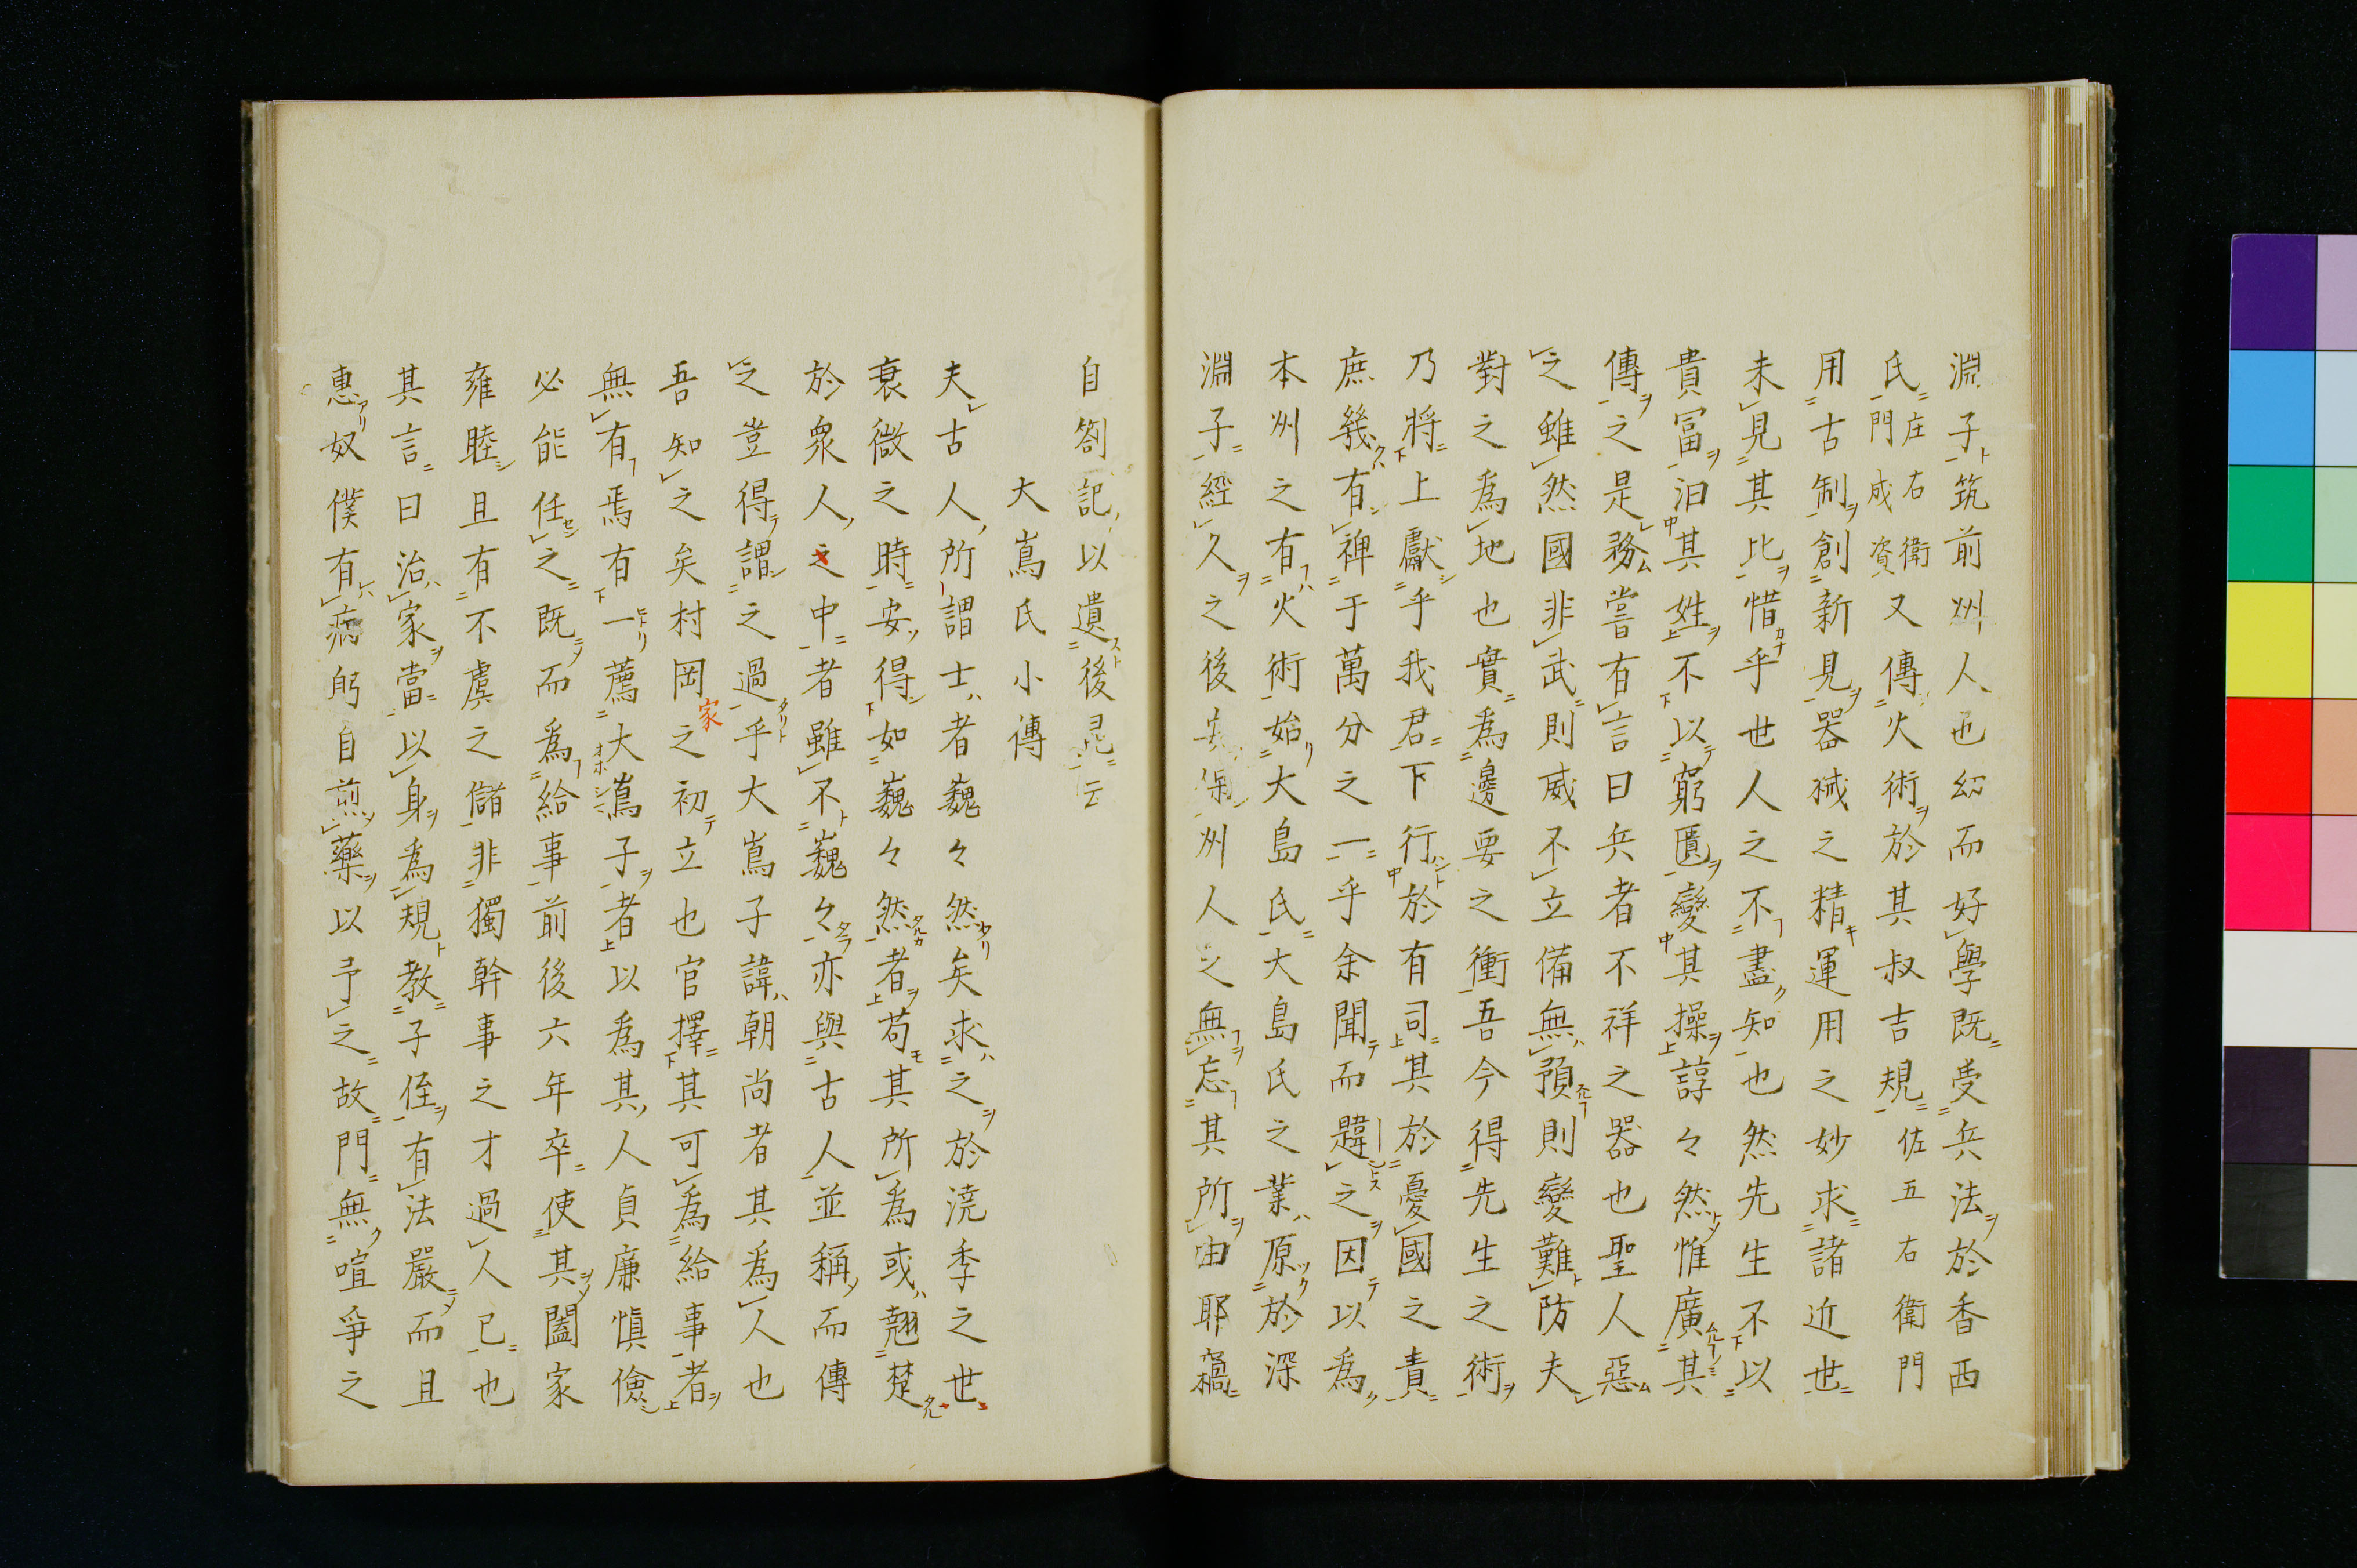 淵子筑前州人也幼而好學既受兵法於香西
氏庄右衛門成資又傳火術於其叔吉規佐五右衛門
用古制創新見器械之精運用之妙求諸近世
未見其比惜乎世人之不盡知也然先生不以
貴冨汨其姓不以窮匱變其操諄々然惟廣其
傳之是務嘗有言曰兵者不祥之器也聖人惡
之雖然國非武則威不立備無預則變難防夫
對之為地也實為邊要之衝吾今得先生之術
乃將上獻乎我君下行於有司其於憂國之責
庶幾有裨于萬分之一乎余聞而韙之因以為
本州之有火術始大島氏大島氏之業原於深
淵子經久之後安保州人之無忘其所由耶竊
自劄記以遺後昆云
大嶌氏小傳
夫古人所謂士者巍々然矣求之於澆季之世
衰微之時安得如巍々然者苟其所為或翹楚
於衆人之中者雖不巍々亦與古人並稱而傳
之豈得謂之過乎大嶌子諱朝尚者其為人也
吾知之矣村岡家之初立也官擇其可為給事者
無有焉有一薦大嶌子者以為其人貞廉愼儉
必能任之既而為給事前後六年卒使其闔家
雍睦且有不虞之儲非獨幹事之才過人已也
其言曰治家當以身為規教子侄有法嚴而且
惠奴僕有病躬自煎藥以予之故門無喧爭之